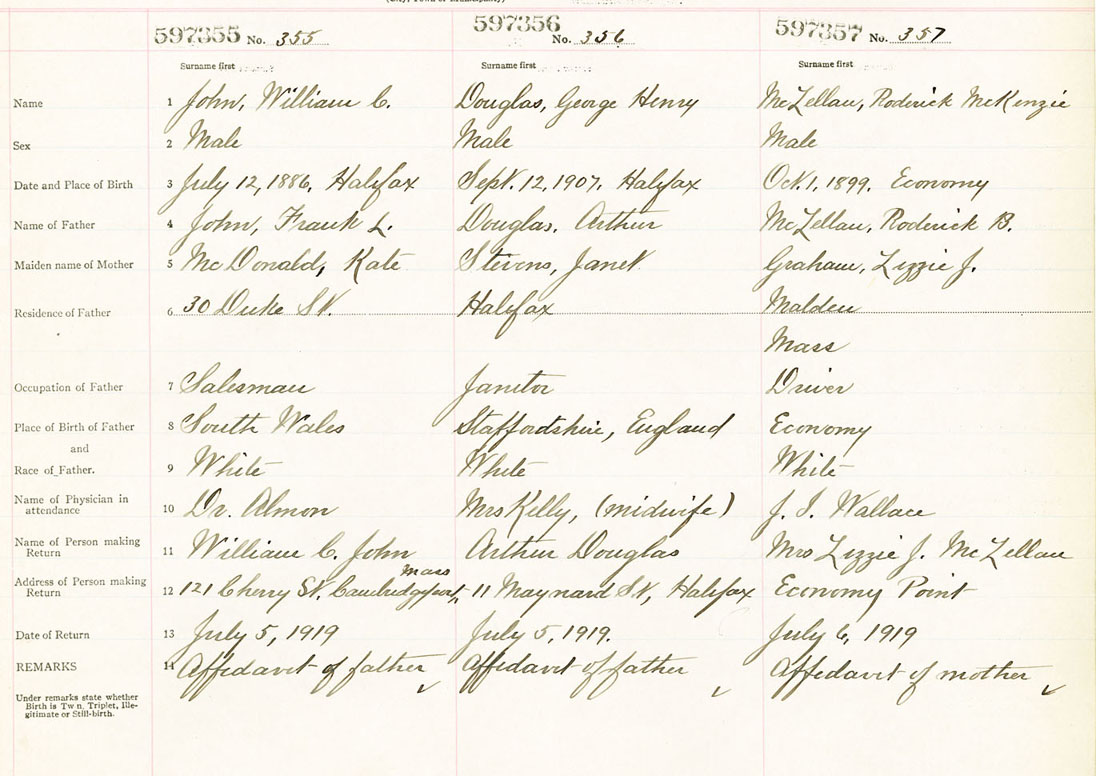 (City, Town or Municipality)
597355 No. 355 597356 No. 356 597357 No. 357
Surname first Surname first Surname first
Name 1 John, William C. Douglas, George Henry McLellan, Roderick McKenzie
Sex 2 Male Male Male
Date and Place of Birth 3 July 12, 1886, Halifax Sept. 12, 1907. Halifax Oct. 1, 1899. Economy
Name of Father 4 John, Frank L. Douglas, Arthur McLellan, Roderick B.
Maiden name of Mother 5 McDonald, Kate Stevens, Janet Graham, Lizzie J.
Residence of Father 6 30 Duke St. Halifax Malden
Mass
Occupation of Father 7 Salesman Janitor Driver
Place of Birth of Father 8 South Wales Staffordshire, England Economy
and
Race of Father. 9 White White White
Name of Physician in
attendance 10 Dr. Almon Mrs Kelly, (midwife) J. J. Wallace
Name of Person making
Return 11 William C. John Arthur Douglas Mrs Lizzie J. McLellan
Mass
Address of Person making
Return 12 121 Cherry St. Cambridgeport, 11 Maynard St, Halifax Economy Point
Date of Return 13 July 5, 1919 July 5, 1919. July 6, 1919
REMARKS 14 Affidavit of father Affidavit of father Affidavit of mother
Under remarks state whether
Birth is Twin, Triplet, Ille-
gitimate or Still-birth.